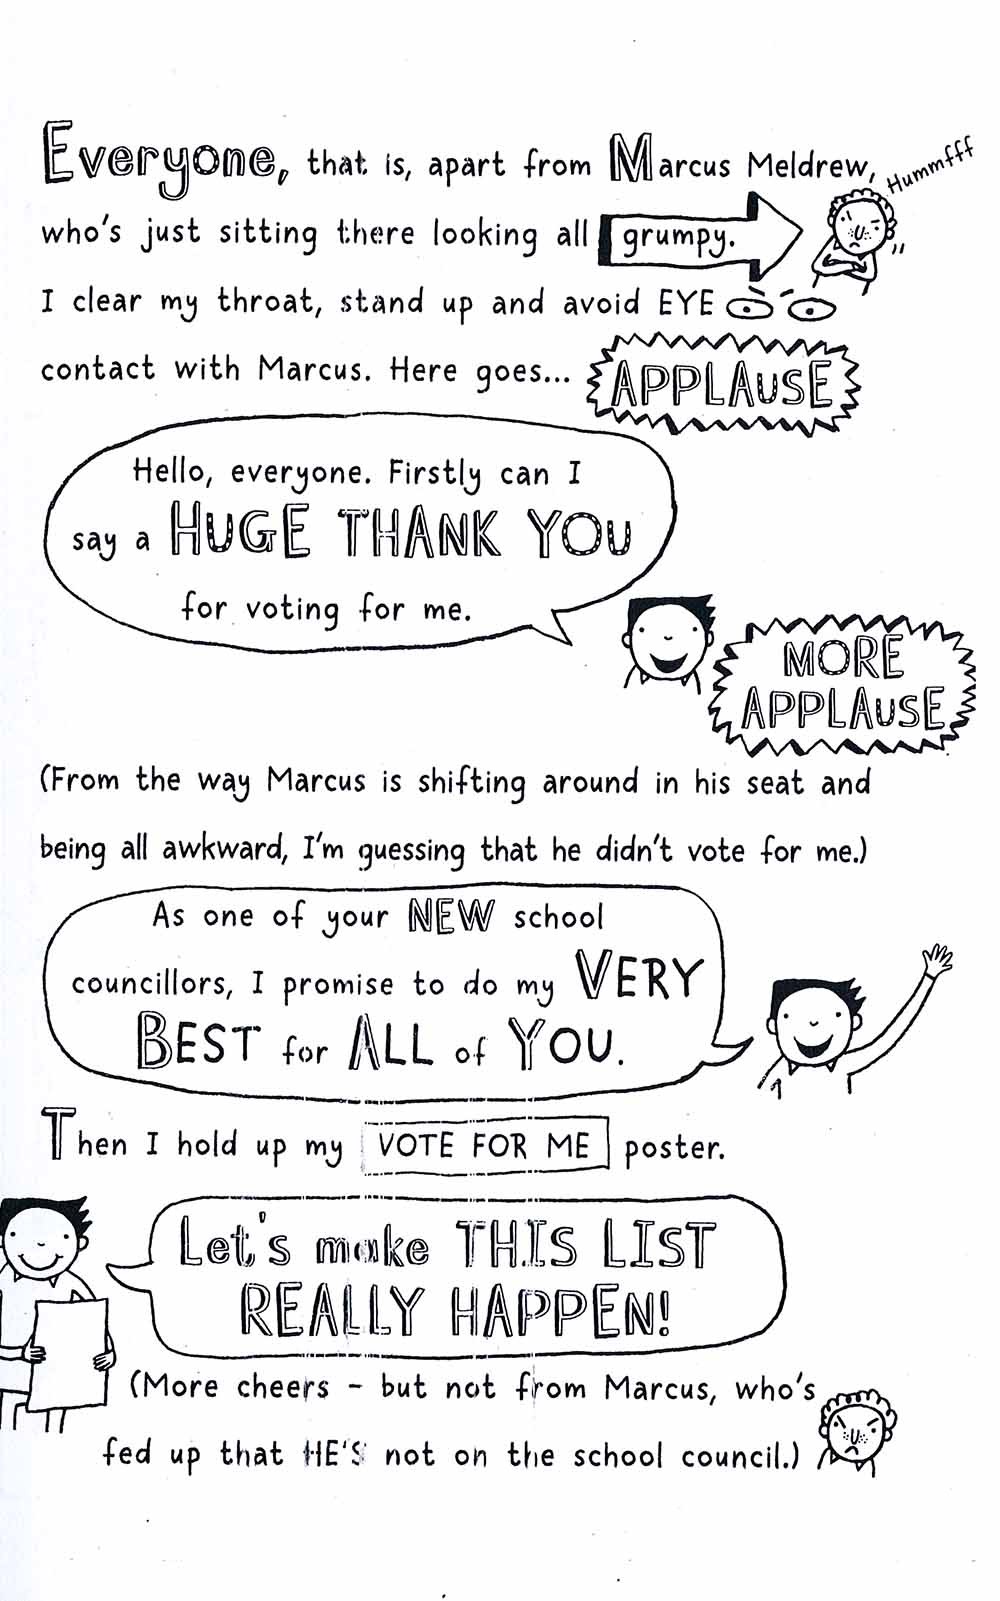 Everyone, that is, apart from Marcus Meldrew,
Hummfff
who's just sitting there looking all grumpy.
I clear my throat, stand up and avoid EYE
contact with Marcus. Here goes...
APPLAUSE
Hello, everyone. Firstly can I
say a HUGE THANK YOU
for voting for me.
MORE
APPLAUSE
(From the way Marcus is shifting around in his seat and
being all awkward, I'm guessing that he didn't vote for me.)
As one of your NEW school
councillors, I promise to do my VERY
BEST for ALL of YOU.
Then I hold up my VOTE FOR ME poster.
Let's make THIS LIST
REALLY HAPPEN!
(More cheers - but not from Marcus, who's
fed up that HE'S not on the school council.)